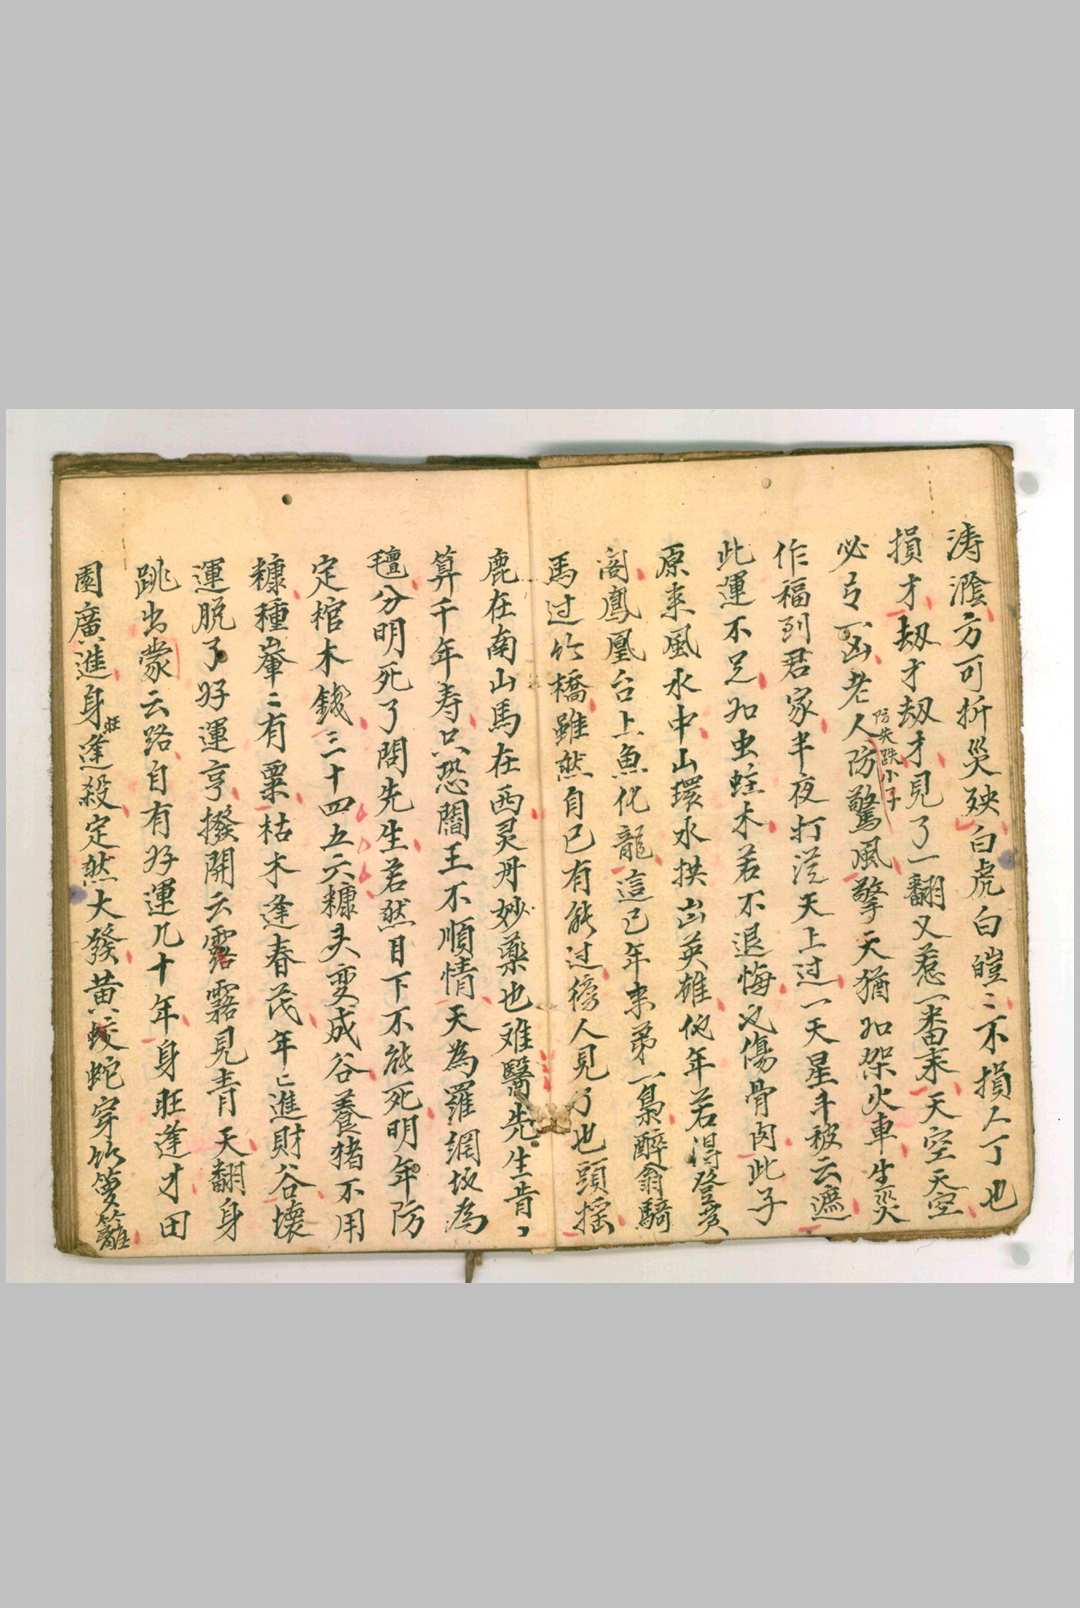 濤潑方可折災殃白虎白皚〻不損人丁也
損才劫才劫才見了一翻又惹一番來天空天空
必有凶老人防驚風擎天猶如架火車生災
防失跌小子
作福到君家半夜打從天上过一天星斗被云遮
此運不足如虫蛀木若不退悔必傷骨肉此子
原來風水中山環水拱出英雄他年若得登
閣鳳凰台上魚化龍這已年來弟一梟醉翁騎
馬过竹橋雖然自己有能过後人見了也頭摇
鹿在南山馬在西灵丹妙藥也难醫先生肯
算千年寿只恐閻王不順情天為羅網地為
氊分明死了問先生若然目下不能死明年防
定棺木錢三十四五六糠夛变成谷養猪不用
糠種〻有粟枯木逢春茂年〻進財谷壞
運脱了好運亨撥開云霧見青天翻身
跳出蒙云路自有好運几十年身旺逢才田
園廣進身旺逢殺定然大發黄蛟蛇穿竹籮籬